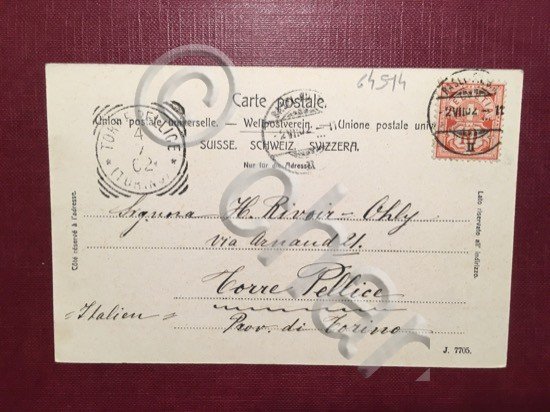 64514
Carte postale.
Union postale universelle. — Weltpostverein. — Unione postale univ
SUISSE. SCHWEIZ. SVIZZERA.
Nur für die Adresse.
TORRE PELLICE
4
7
02
(TORINO)
2.VII.02
2.VII.02
HELVETIA
Côté réservé à l'adresse.
Lato riservato all'indirizzo.
Signora H. Rivoir-Ohly
via Arnaud 21.
Torre Pellice
Italien
Prov. di Torino
J. 7705.
© char